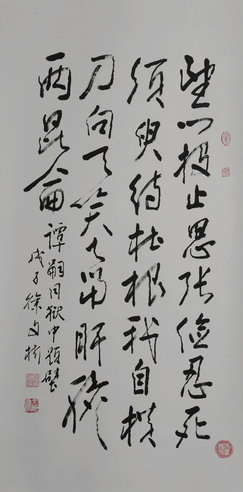 望门投止思张俭忍死
须臾待杜根我自横
刀向天笑去留肝膽
两昆侖
譚嗣同狱中题壁
戊子徐文